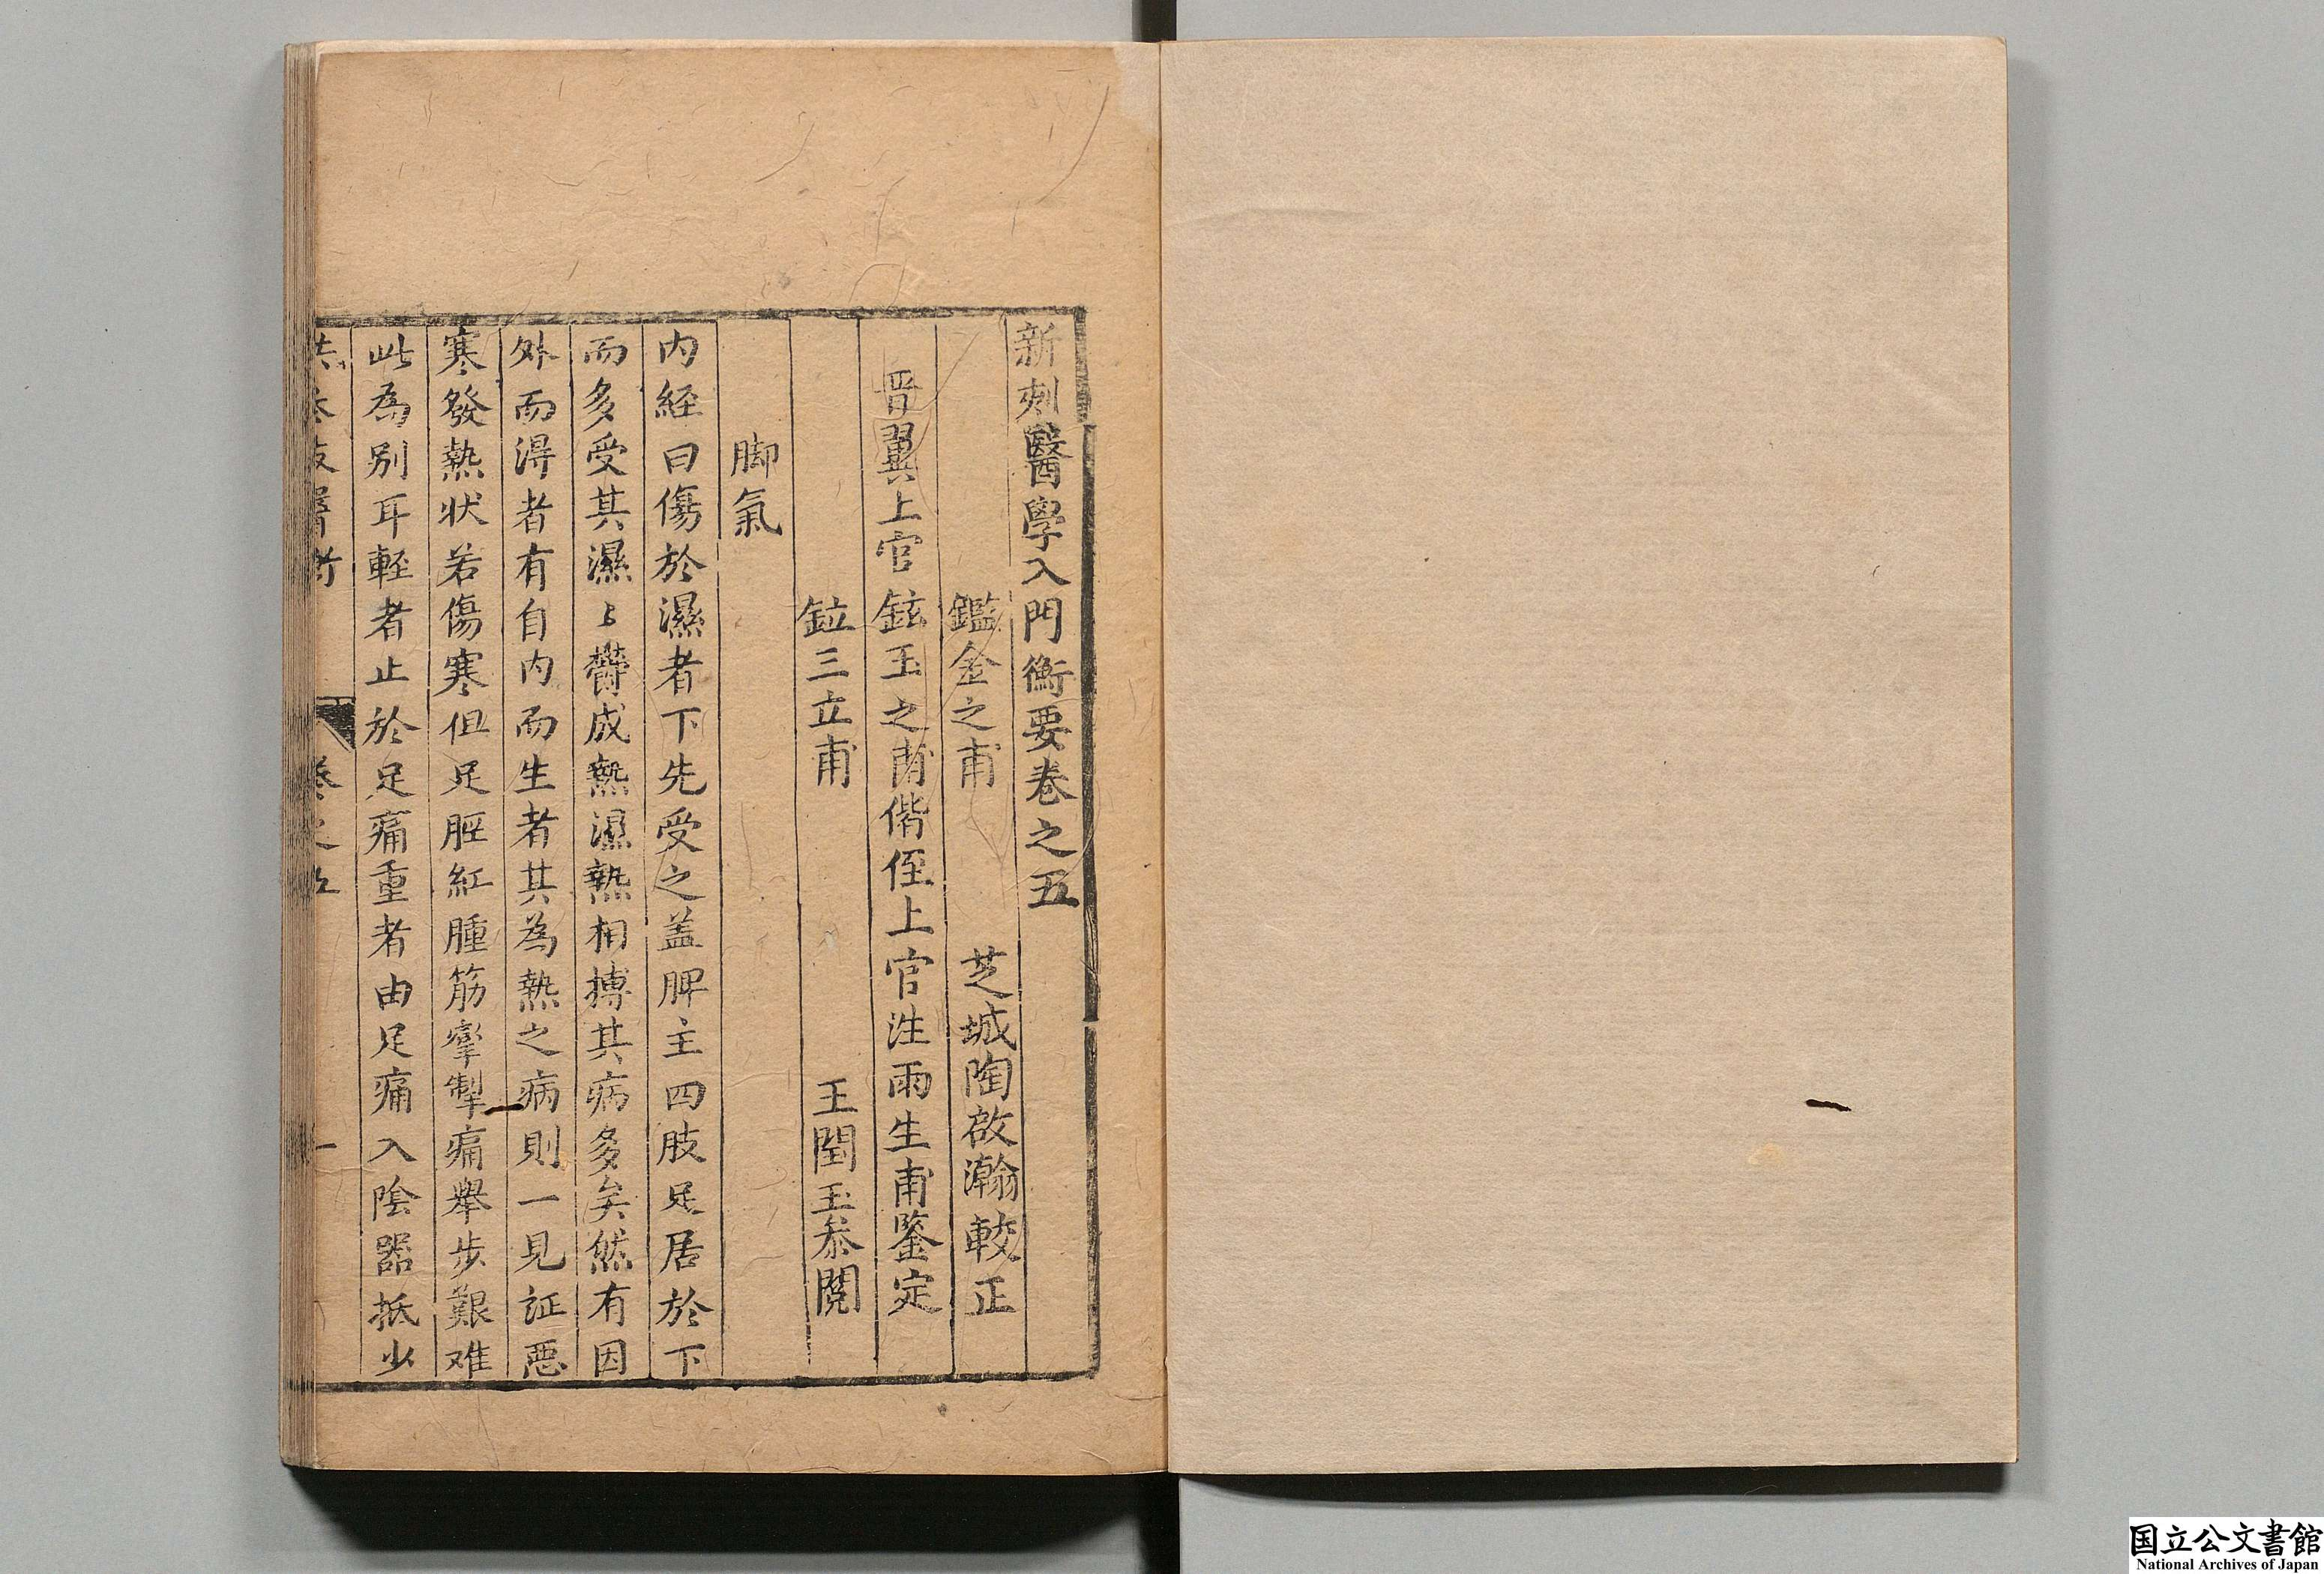 新刻醫學入門衡要卷之五
鑑金之甫　芝城陶啟瀚較正
晋翼上官鉉玉之甫偕侄上官汪雨生甫鑒定
鉝三立甫　王閏玉叅閱
脚氣
内経曰傷於濕者下先受之盖脾主四肢足居於下
而多受其濕〻欝成熱濕熱相搏其病多矣然有因
外而淂者有自内而生者其為熱之病則一見証悪
寒發熱状若傷寒但足脛紅腫筋攣掣痛舉步艱难
此為別耳軽者止於足痛重者由足痛入陰器抵少
卷之五　一
国立公文書館
National Archives of Japan